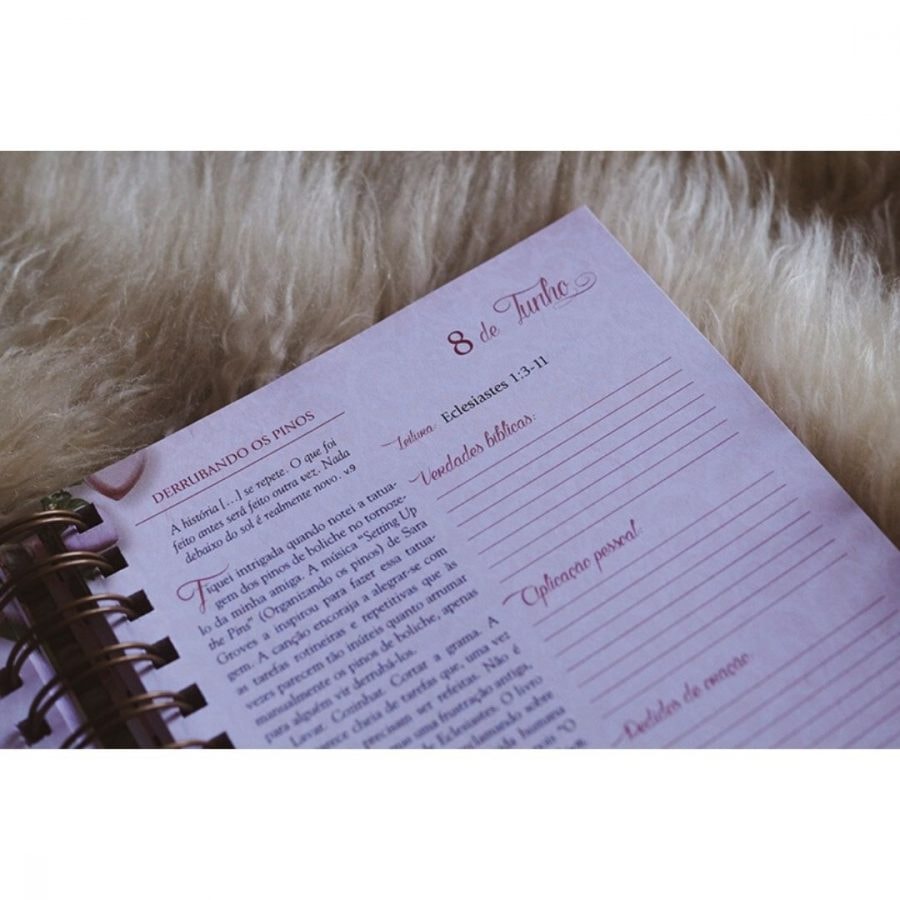 DERRUBANDO OS PINOS
A história [...] se repete. O que foi
feito antes será feito outra vez. Nada
debaixo do sol é realmente novo. v.9
Fiquei intrigada quando notei a tatua-
gem dos pinos de boliche no tornoze-
lo da minha amiga. A música "Setting Up
the Pins" (Organizando os pinos) de Sara
Groves a inspirou para fazer essa tatua-
gem. A canção encoraja a alegrar-se com
as tarefas rotineiras e repetitivas que às
vezes parecem tão inúteis quanto arrumar
manualmente os pinos de boliche, apenas
para alguém vir derrubá-los.
Lavar. Cozinhar. Cortar a grama. A
parece cheia de tarefas que, uma vez
precisam ser refeitas. Não é
uma frustração antiga,
de Eclesiastes. O livro
clamando sobre
humana
"O
8 de Junho
Leitura: Eclesiastes 1:3-11
Verdades bíblicas:
Aplicação pessoal:
Pedidos de oração: